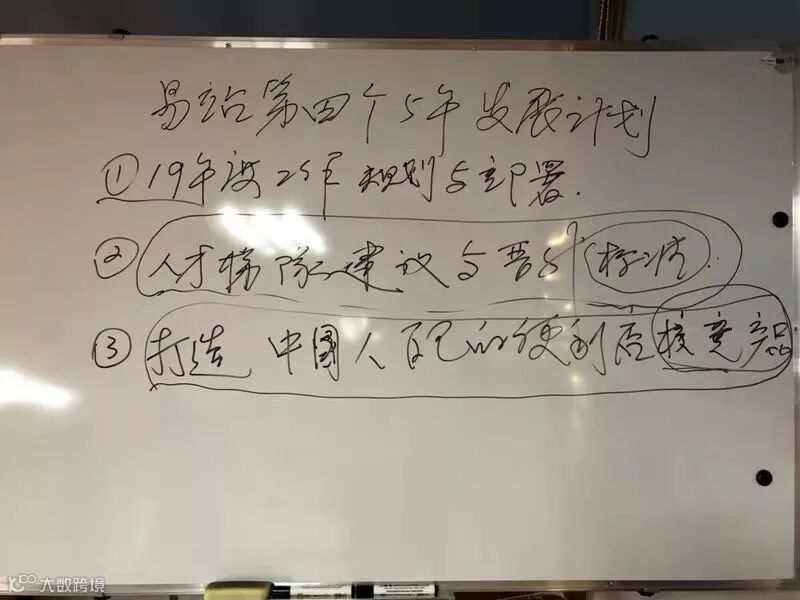 易站第四个5年发展计划
①19年度工作规划与部署.
②人才梯队建设与晋升标准.
③打造中国人自己的便利店核竞产品
大数跨境